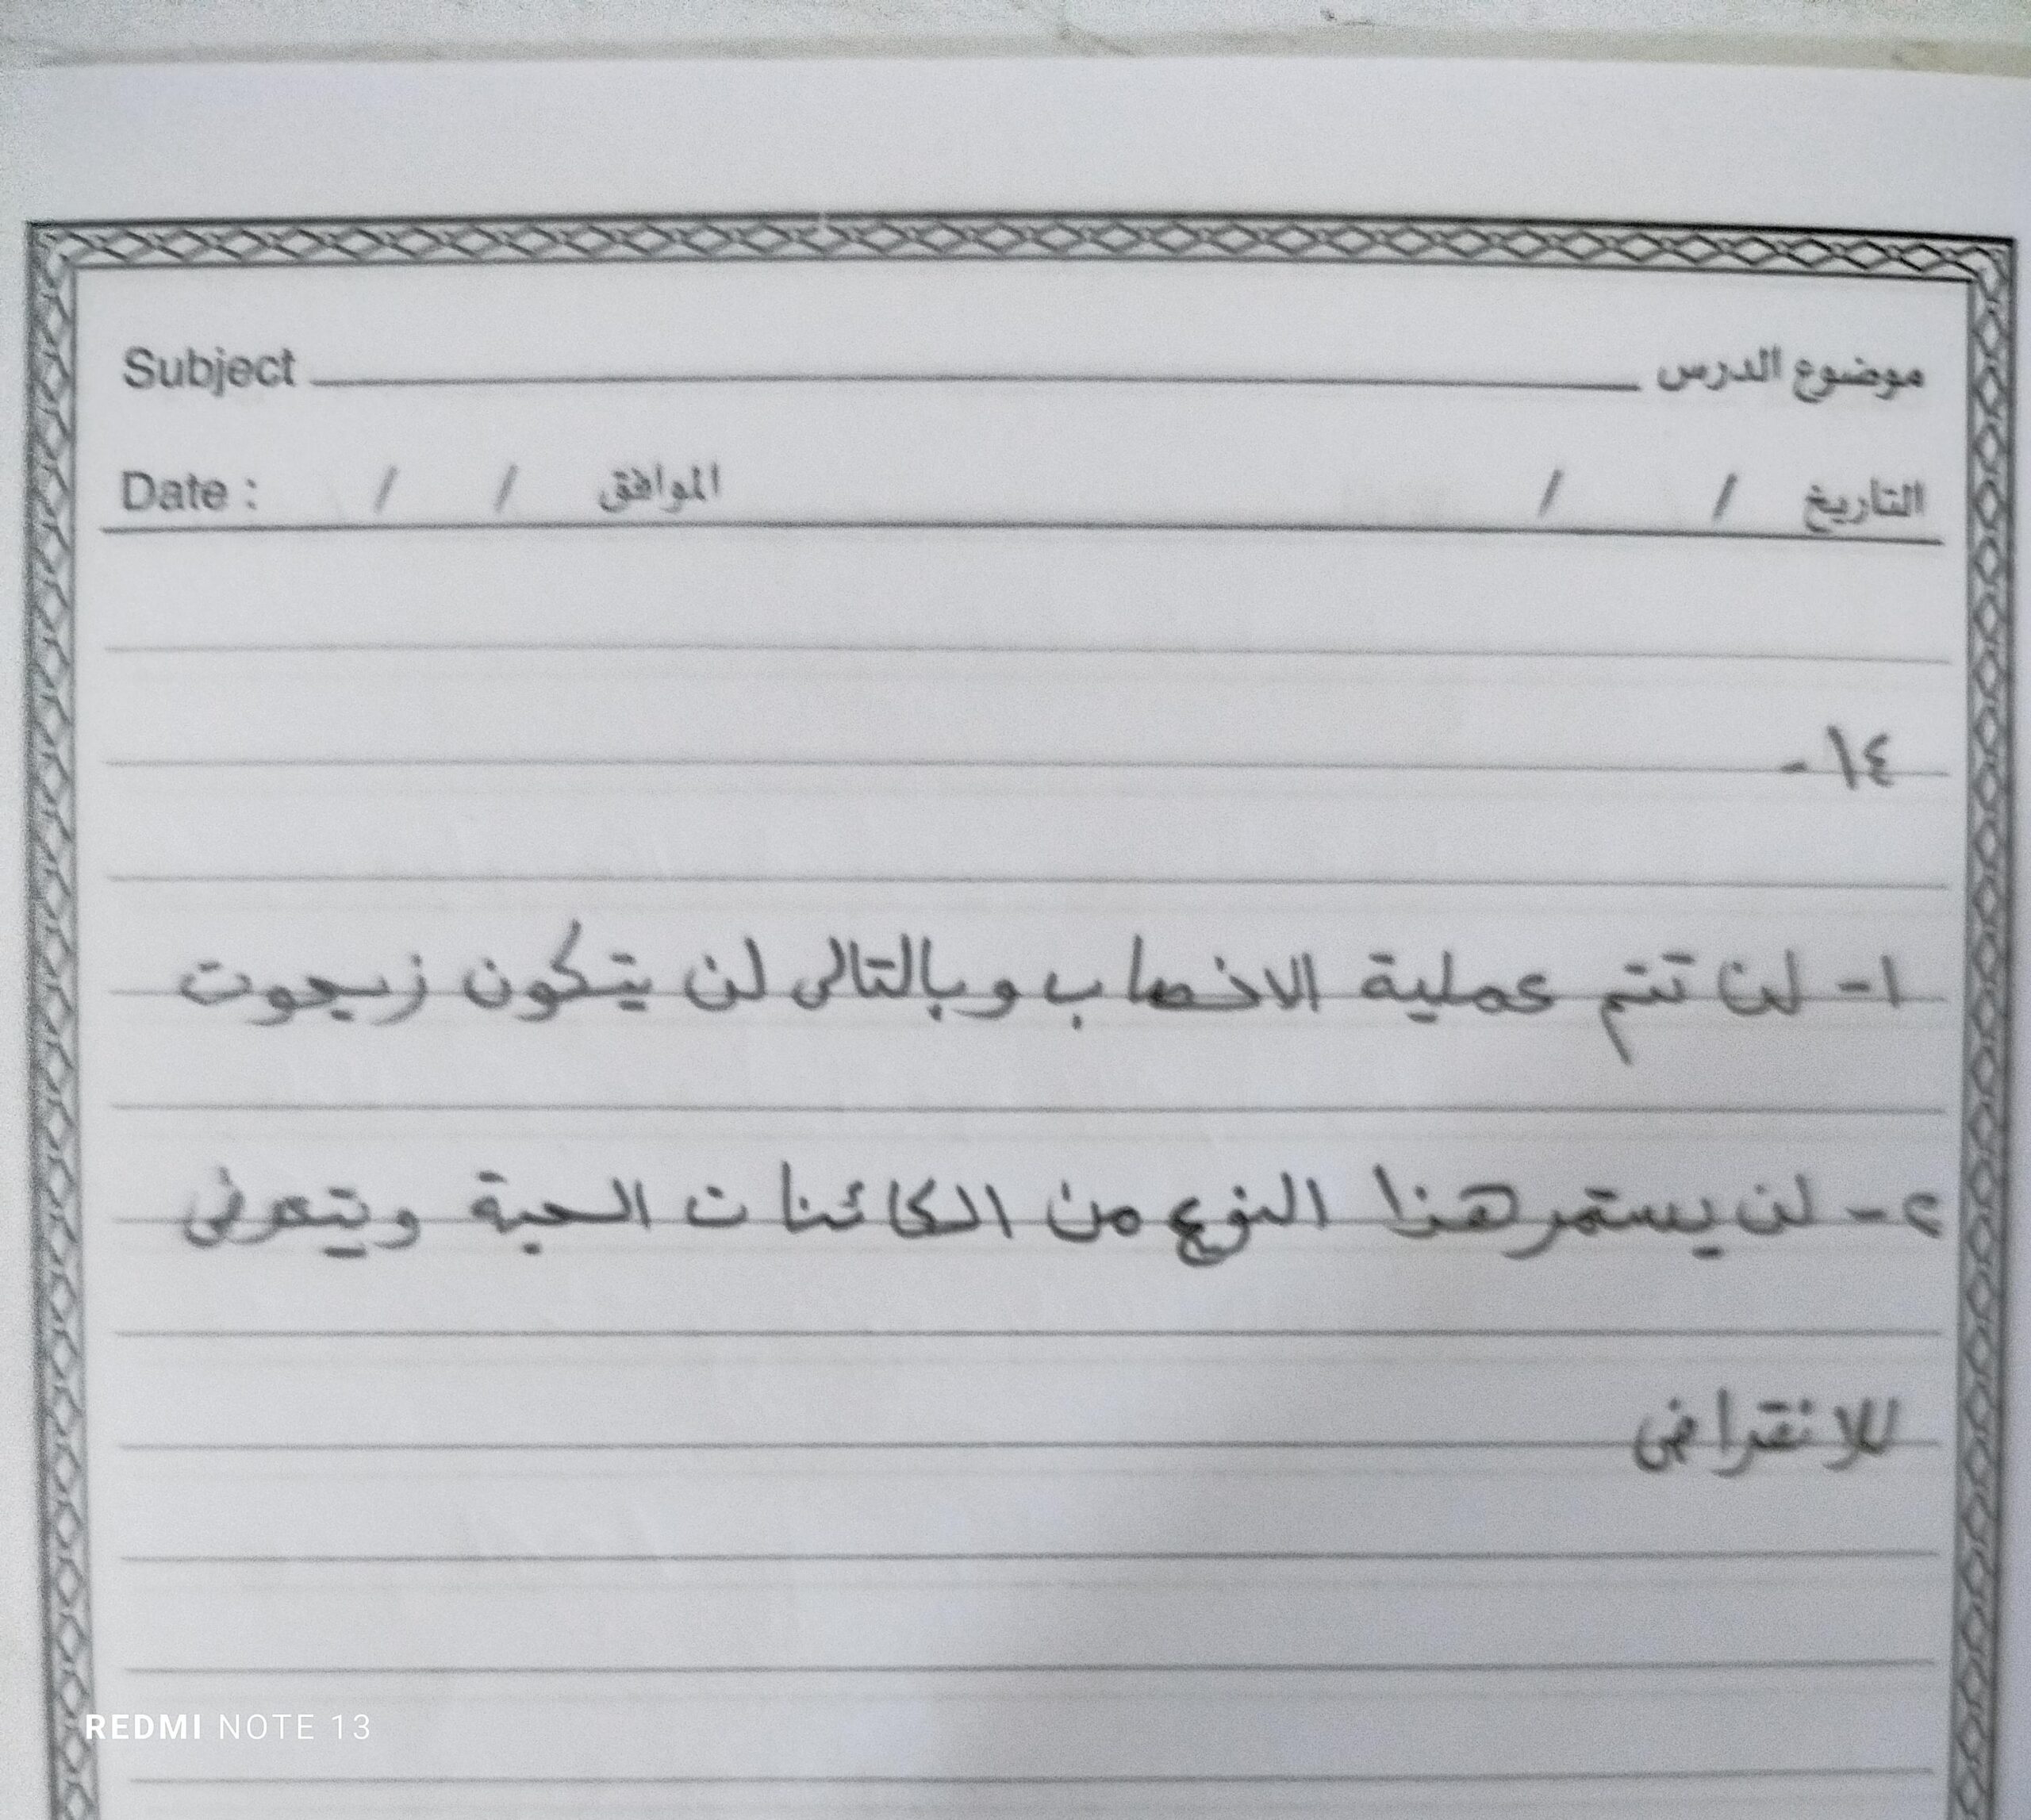 Subject موضوع الدرس
Date : / / الموافق / / التاريخ
١٤-
١- لن تتم عملية الاخصاب وبالتالى لن يتكون زيجوت
٢- لن يستمر هذا النوع من الكائنات الحية ويتعرض
للانقراض
REDMI NOTE 13